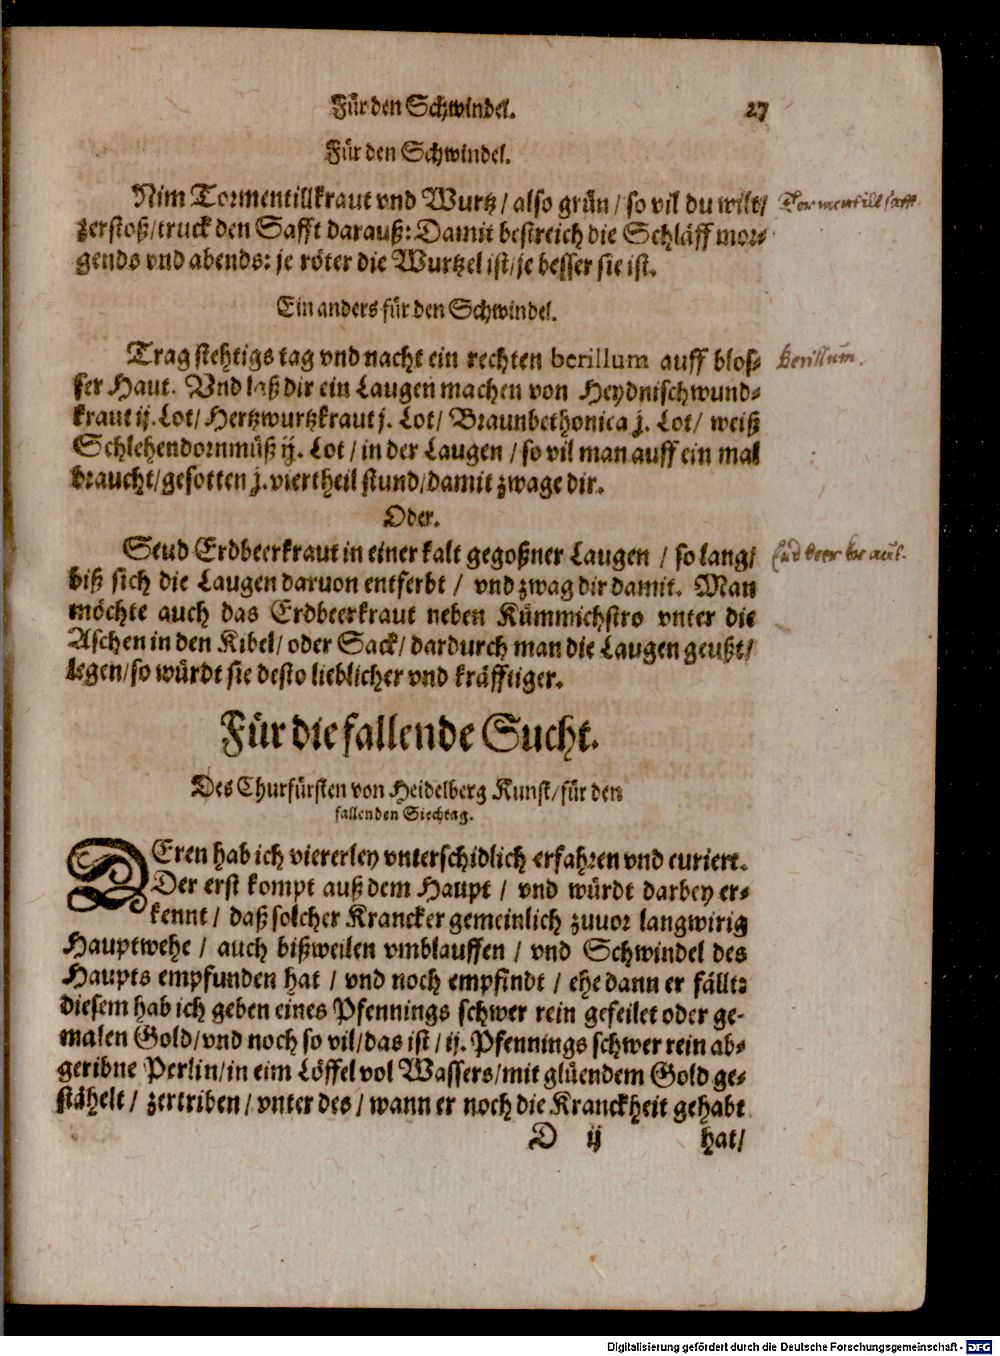 Für den Schwindel. 27
Für den Schwindel.
Nim Tormentillkraut vnd Wurtz / also grün / so vil du wilt/
zerstoß/truck den Safft darauß: Damit bestreich die Schläff mor-
gends vnd abends: je röter die Wurtzel ist/je besser sie ist.
Tormentill safft.
Ein anders für den Schwindel.
Trag stehtigs tag vnd nacht ein rechten berillum auff blos-
ser Haut. Vnd laß dir ein Laugen machen von Heydnischwund-
kraut ij. Lot/ Hertzwurtzkraut j. Lot/ Braunbethonica j. Lot/ weiß
Schlehendornmüß ij. Lot / in der Laugen / so vil man auff ein mal
braucht/gesotten j. viertheil stund/damit zwage dir.
Berillum.
Oder.
Seud Erdbeerkraut in einer kalt gegoßner Laugen / so lang/
biß sich die Laugen daruon entferbt / vnd zwag dir damit. Man
möchte auch das Erdbeerkraut neben Kümmichstro vnter die
Aschen in den Kibel/ oder Sack/ dardurch man die Laugen geußt/
legen/so würdt sie desto lieblicher vnd kräfftiger.
Erdbeer kraut.
Für die fallende Sucht.
Des Churfürsten von Heidelberg Kunst/für den
fallenden Siechtag.
DEren hab ich viererley vnterschidlich erfahren vnd curiert.
Der erst kompt auß dem Haupt / vnd würdt darbey er-
kennt / daß solcher Krancker gemeinlich zuuor langwirig
Hauptwehe / auch bißweilen vmblauffen / vnd Schwindel des
Haupts empfunden hat / vnd noch empfindt / ehe dann er fällt:
diesem hab ich geben eines Pfennings schwer rein gefeilet oder ge-
malen Gold/vnd noch so vil/das ist / ij. Pfennings schwer rein ab-
geribne Perlin/in eim Löffel vol Wassers/mit glüendem Gold ge-
stähelt / zertriben / vnter des / wann er noch die Kranckheit gehabt
D ij hat/
Digitalisierung gefördert durch die Deutsche Forschungsgemeinschaft - DFG